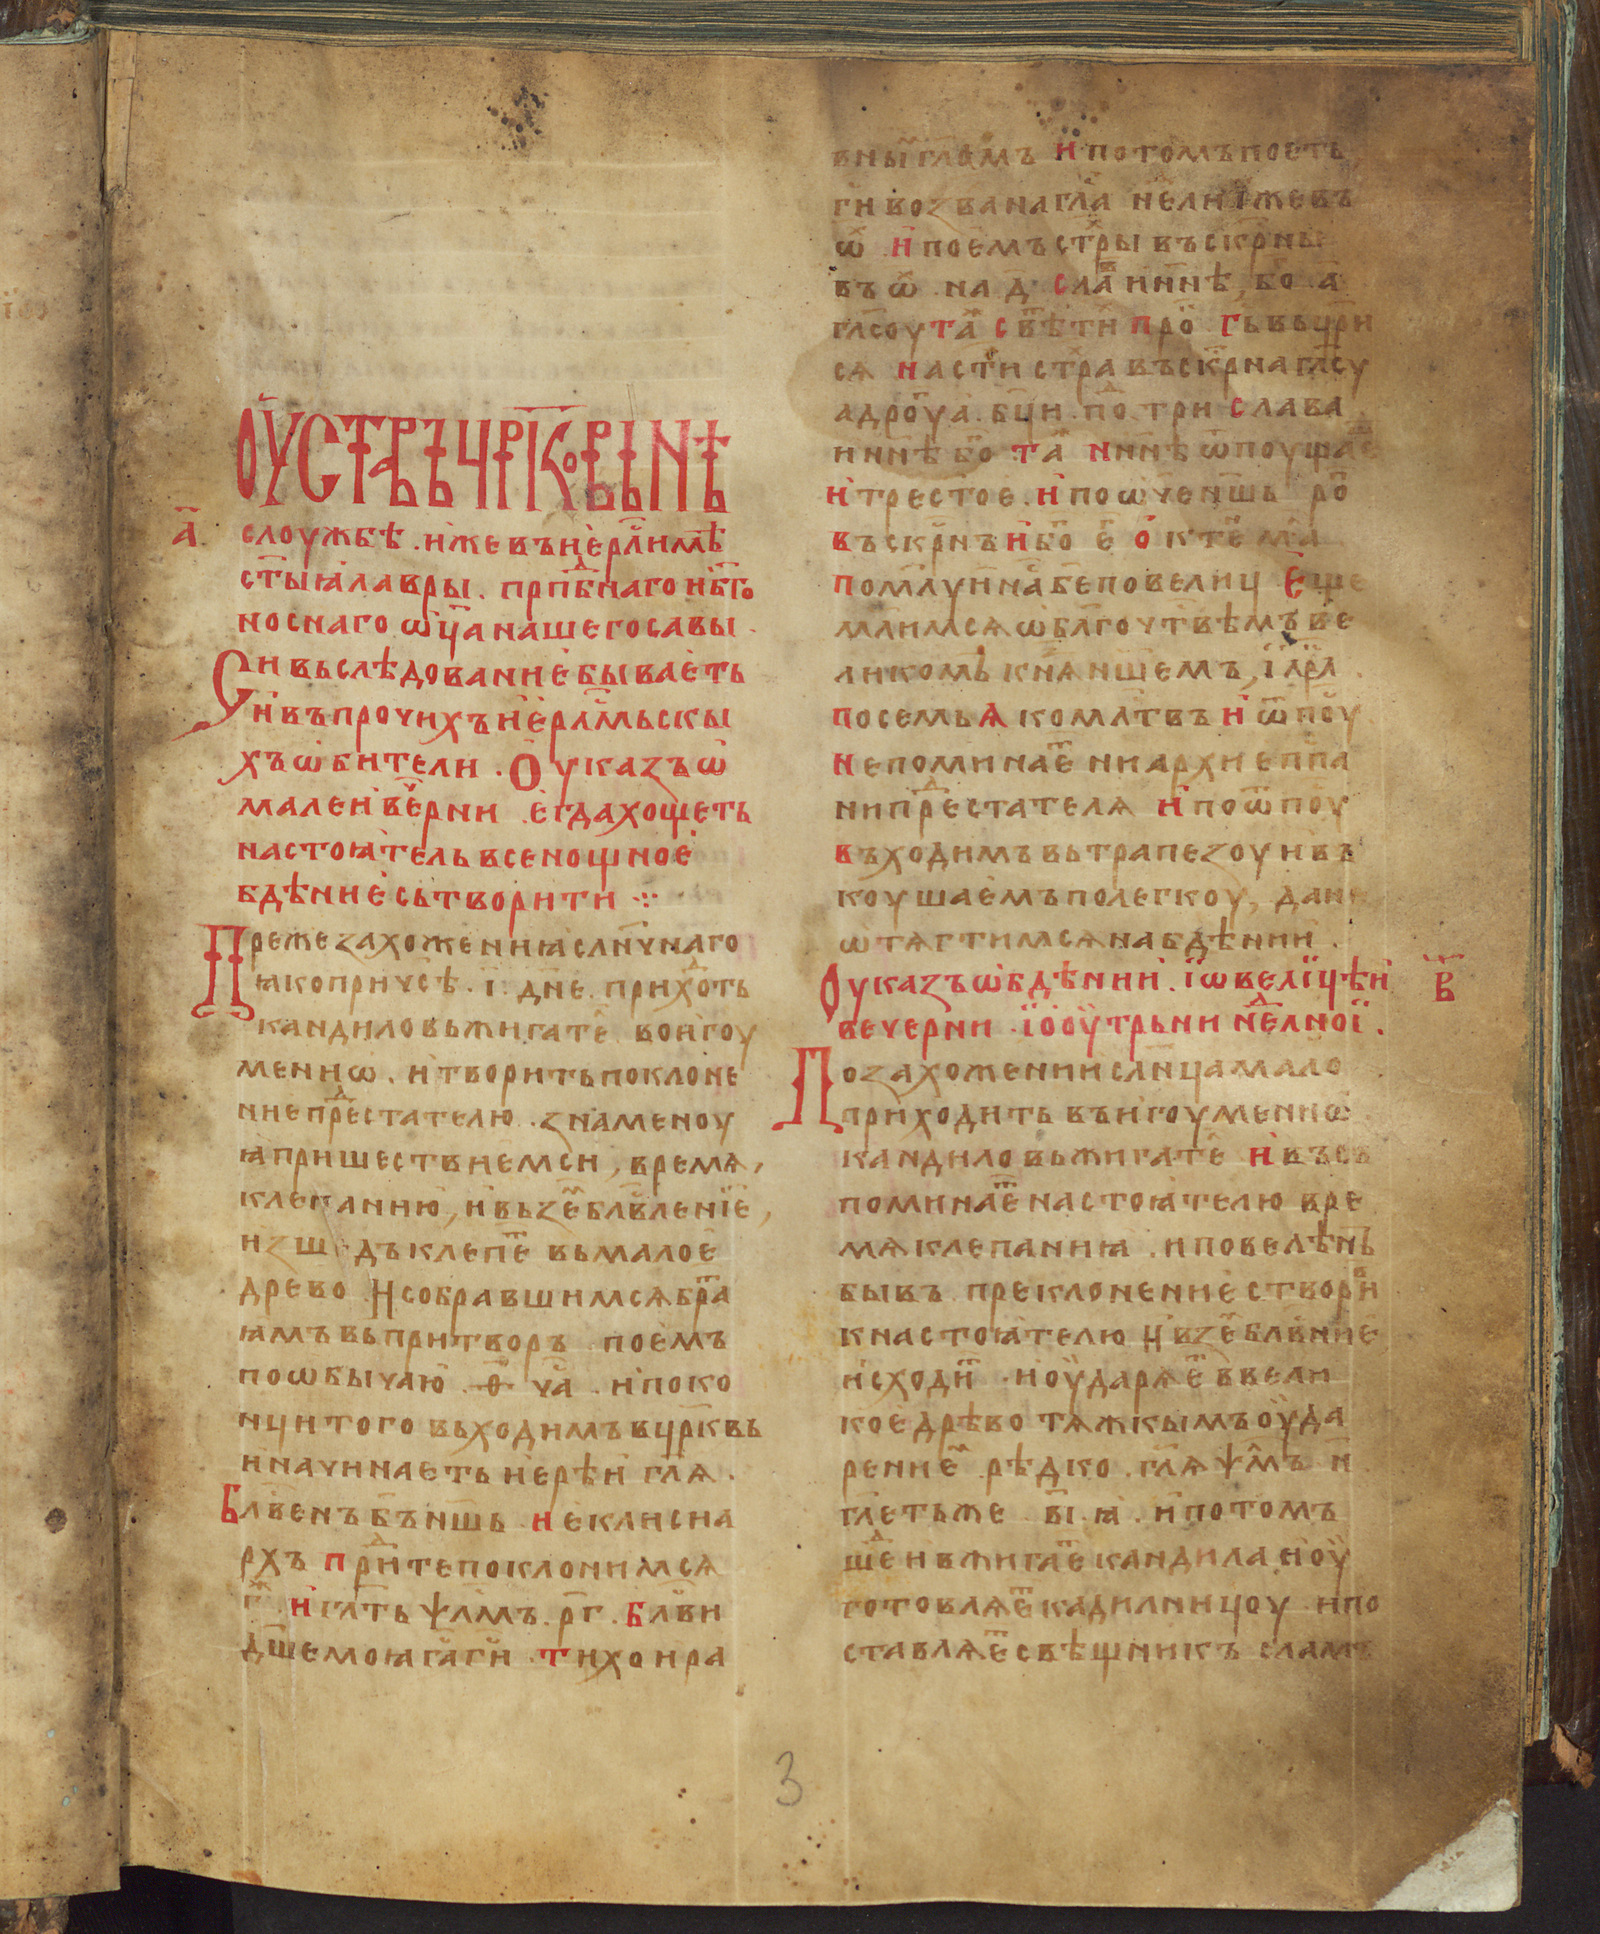 ОУСТАВЪ ЧР҃КОВЬНѢ
а҃. слоужбѣ . иже въ иерл҃имѣ
ст҃ыꙗ лавры . прп҃бнаго и бг҃о
носнаго ѿц҃а нашего савы .
Си вьслѣдование бываеть
и въ прочихъ иерл҃мьскы
хъ ѡбители . Оуказъ ѡ
малеи вч҃ерни егда хощеть
настоꙗтель всенощное
бдѣние сьтворити ⁘
Преже захожениꙗ слн҃чнаго
ꙗко при чсѣ . і҃ . дн҃е . приходть
кандиловьжигате во игоу
мениѡ . и творить поклоне
ние прⷣестателю . знаменоу
ꙗ пришествиемси , время ,
клепанию , и вьзе бл҃вление ,
изшедъ клепеⷮ вь малое
древо И собравшимся браⷮ
ꙗмъ вь притворъ поемъ
по ѡбычаю . ѳ҃ ча҃ . и по ко
нци того входимъ в цр҃квь
и начинаеть иерѣи гл҃я .
Бл҃венъ бъ҃ нш҃ь и еклисиа
рхъ приⷣте поклонимся
г҃ . и гл҃ть ѱл҃мъ . рг҃ . Бл҃ви
дш҃е моꙗ га҃ ги҃ тихо и ра
вныⷨ гласⷨмъ и потомъ поеть
ги҃ возва на гла҃ не҃ли иже въ
ѿ и поемъ стрⷯы въскр҃ны
въ ѿ на д҃ слаⷡ и ннѣ , бо҃ а҃
гл҃соу таⷤ свѣти про гь҃ вьцр҃и
ся на стⷯи стра въскр҃на гл҃су
а дроуа҃ . бц҃и . поⷣ три слава
и ннѣ бо҃ таⷤ ннѣ ѿпоущаеⷮ
и трестое . и по ѡч҃е нш҃ь ро҃
въскр҃нъ и бо҃ е҃ октема
помлуи на҃ бе҃ по велиц Еще
млимся ѡ бл҃гоч҃тивѣмъ ве
ликомь кн҃яи нш҃емъ , і҃м҃рк .
посемь яко млтвъ и ѿпоу҃
не поминаеⷮ ни архиепп҃а
ни прⷣестателя и по ѿпоу
въходимъ вь трапезоу и въ
коушаемъ по легкоу , да не
ѡтягтимся на бдѣнии .
Оуказъ ѡ бдѣнии . і ѡ велицѣи в҃
вечерни . і о оутрьни неⷣлної .
По захожении слн҃ца мало
приходить въ игоумениѡ
кандиловьжигате и въсъ
поминаеⷮ настоꙗтелю вре
мя клепаниꙗ . и повелѣнъ
бывъ преклонение створи
к настоꙗтелю И взе бл҃вние
исходиⷮ . и оударяеⷮ в вели
кое дрѣво тяжкымъ оуда
рение рѣдко . гл҃я ѱл҃мъ н҃
гл҃еть же в҃і . ꙗ . и потомъ
шеⷣ и вжигаеⷮ кандила и оу
готовляеⷮ кадилницоу и по
ставляеⷮ свѣщникъ с ламъ
3